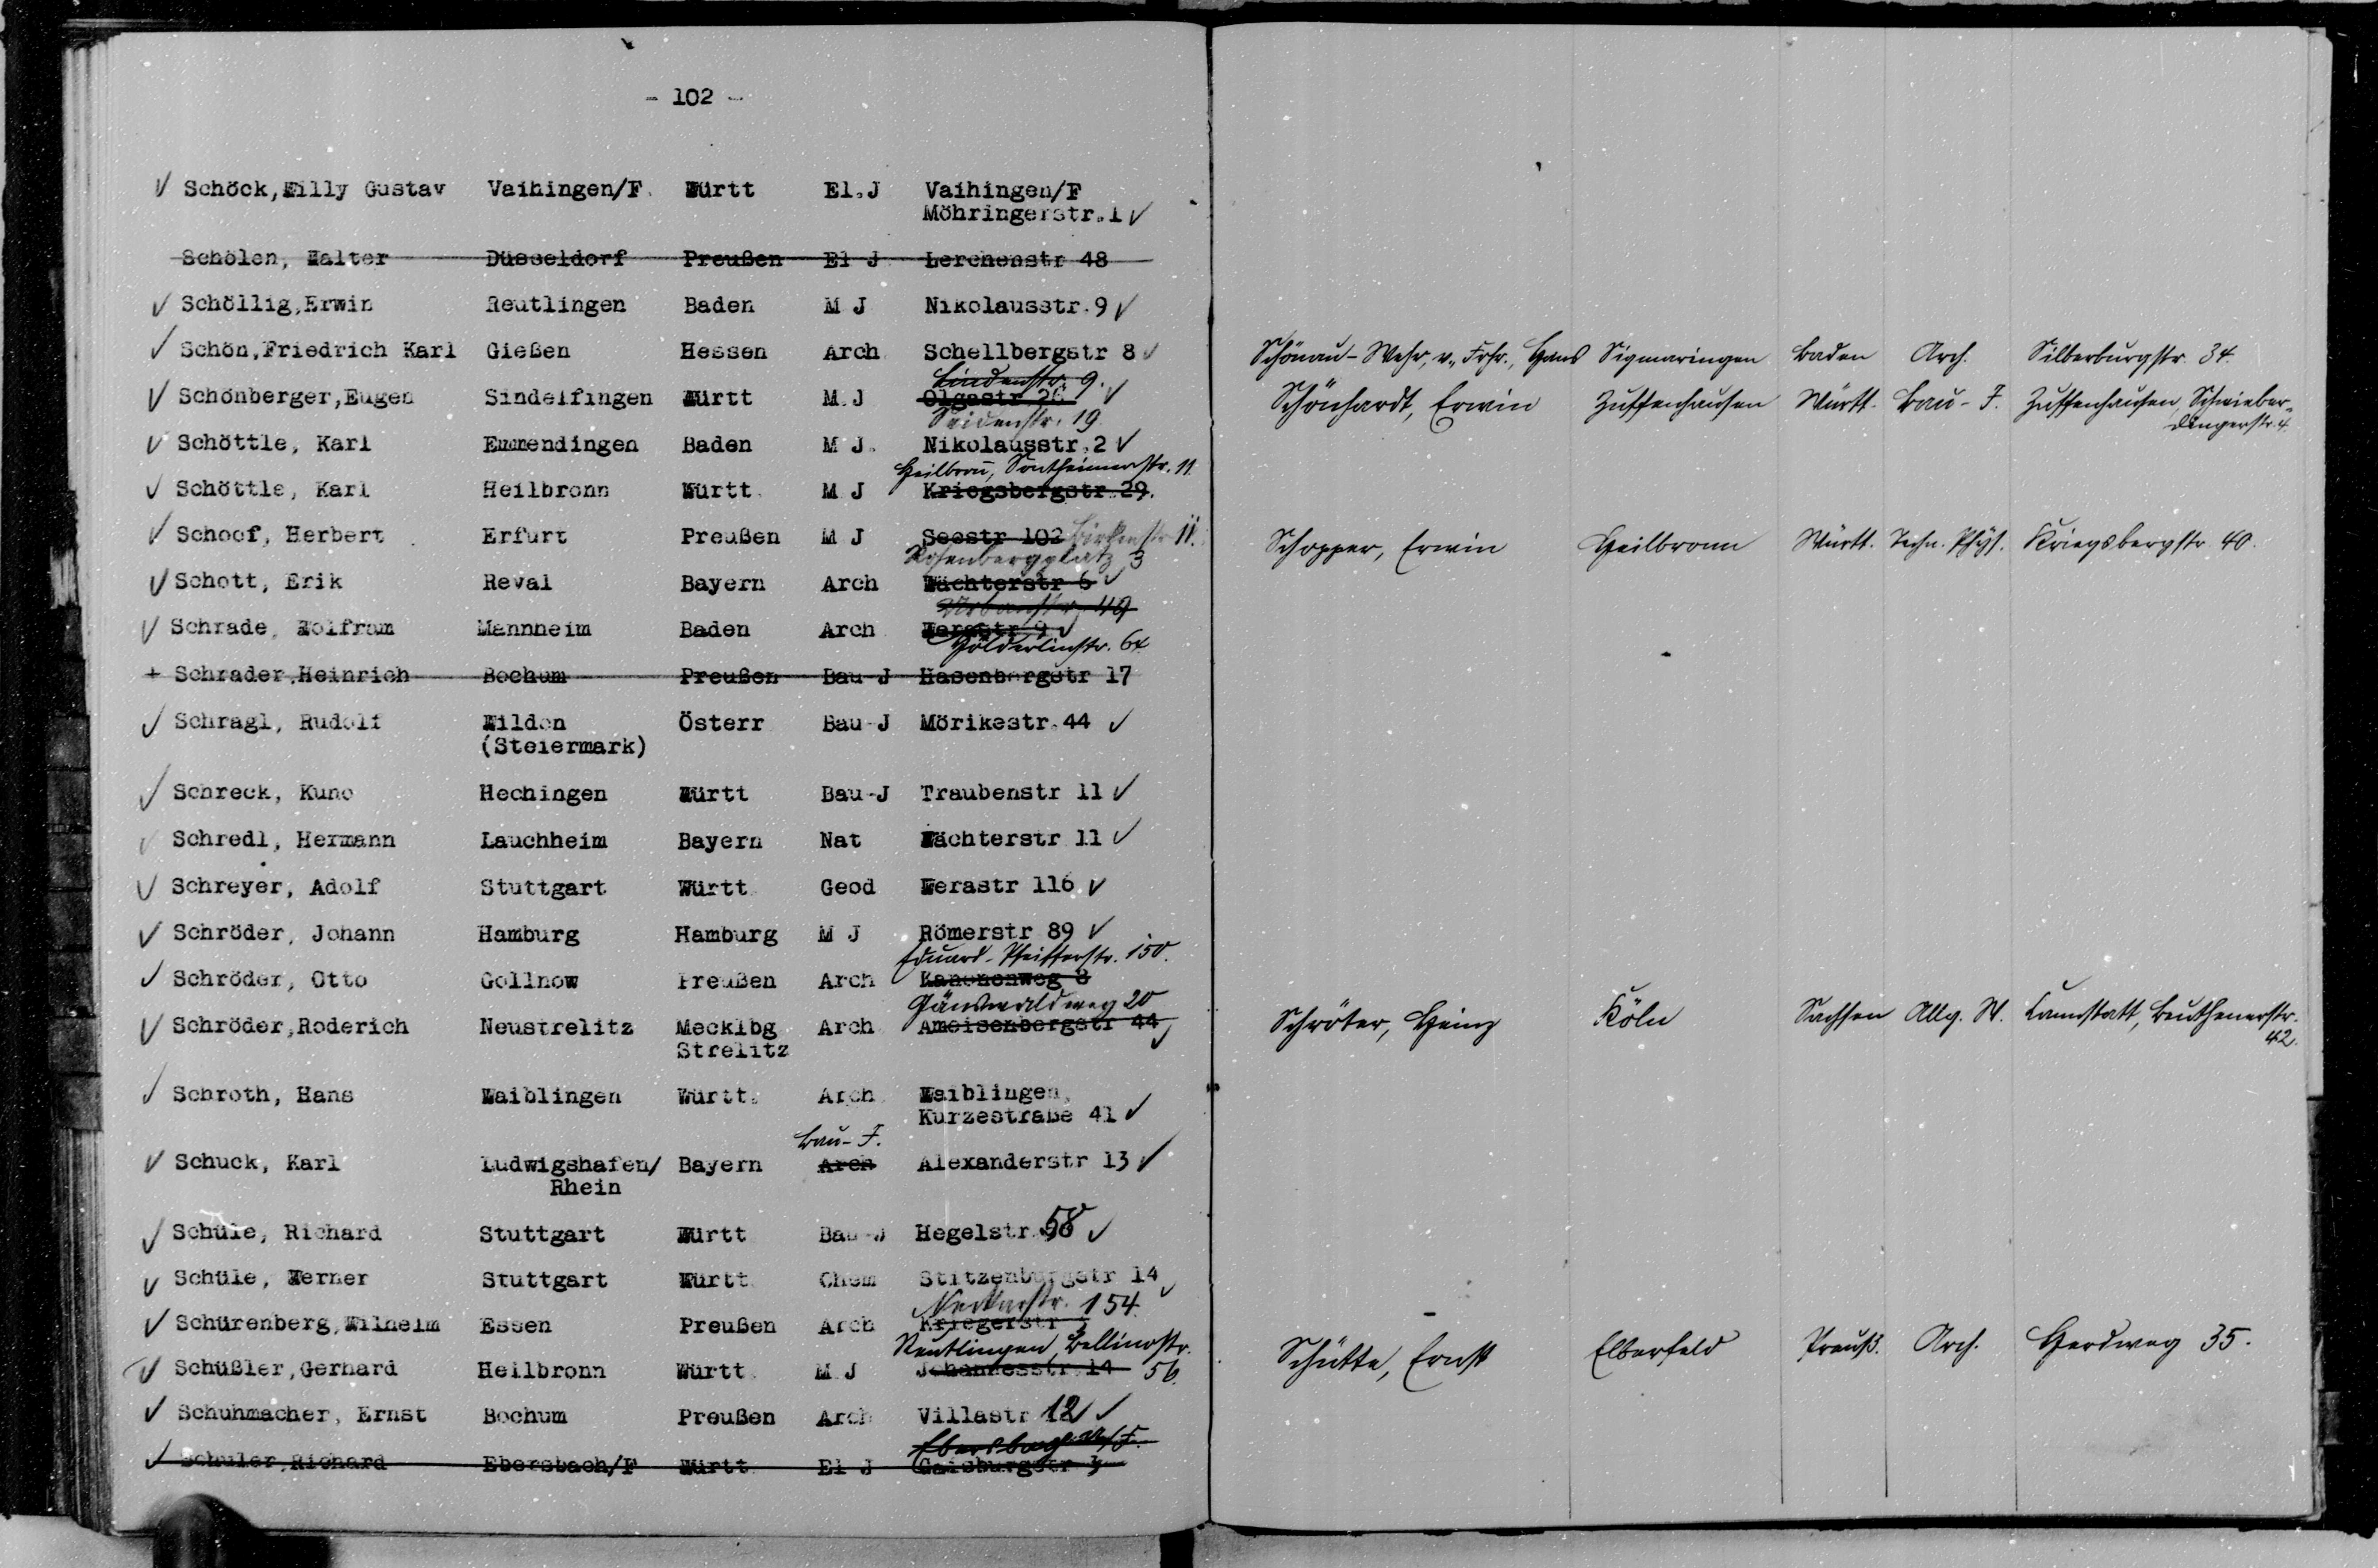 - 102 -
Schöck, Willy Gustav Vaihingen/F. Württ El.J Vaihingen/F
Möhringerstr.1
Schölen, Walter Düsseldorf Preußen El J Lerchenstr 48
Schöllig,Erwin Reutlingen Baden M J Nikolausstr.9
Schön,Friedrich Karl Gießen Hessen Arch Schellbergstr 8
Lindenstr. 9.
Schönberger,Eugen Sindelfingen Württ M.J Olgastr 26
Seidenstr. 19
Schöttle, Karl Emmendingen Baden M J. Nikolausstr.2
Heilbronn, Sontheimerstr. 11
Schöttle, Karl Heilbronn Württ. M J Kriegsbergstr.29.
Schoof, Herbert Erfurt Preußen M J Seestr 102 Birkenstr 11.
Rosenbergplatz 3
Schott, Erik Reval Bayern Arch Wächterstr 6
Urbanstr. 49
Schrade, Wolfram Mannheim Baden Arch Werastr 9
Hölderlinstr. 64
+ Schrader,Heinrich Bochum Preußen Bau-J Hasenbergstr 17
Schragl, Rudolf Wildon Österr Bau-J Mörikestr.44
(Steiermark)
Schreck, Kuno Hechingen Württ Bau-J Traubenstr 11
Schredl, Hermann Lauchheim Bayern Nat Wächterstr 11
Schreyer, Adolf Stuttgart Württ Geod Werastr 116
Schröder, Johann Hamburg Hamburg M J Römerstr 89
Eduard-Pfeifferstr. 150.
Schröder, Otto Gollnow Preußen Arch Kanonenweg 8
Gänswaldweg 20
Schröder,Roderich Neustrelitz Mecklbg Arch Ameisenbergstr 44
Strelitz
Schroth, Hans Waiblingen Württ. Arch Waiblingen,
Kurzestraße 41
Bau-J.
Schuck, Karl Ludwigshafen/ Bayern Arch Alexanderstr 13
Rhein
Schüle, Richard Stuttgart Württ Bau-J Hegelstr 58
Schüle, Werner Stuttgart Württ. Chem Stitzenburgstr 14
Neckarstr. 154.
Schürenberg,Wilhelm Essen Preußen Arch Kriegerstr
Reutlingen, Bellinostr.
Schüßler,Gerhard Heilbronn Württ. M J Johannesstr.14 56.
Schuhmacher, Ernst Bochum Preußen Arch Villastr 12
Ebersbach a/F.
Schuler,Richard Ebersbach/F Württ El J Gaisburgstr
Schönau-Wehr, v., Frhr., Hans Sigmaringen Baden Arch. Silberburgstr. 34.
Schönhardt, Erwin Zuffenhausen Württ. Bau-J. Zuffenhausen, Schwieber-
dingerstr. 4.
Schopper, Erwin Heilbronn Württ. Techn. Phys. Kriegsbergstr. 40.
Schröter, Heinz Köln Sachsen Allg. W. Cannstatt, Beuthenerstr.
42.
Schütte, Ernst Elberfeld Preuß. Arch. Herdweg 35.